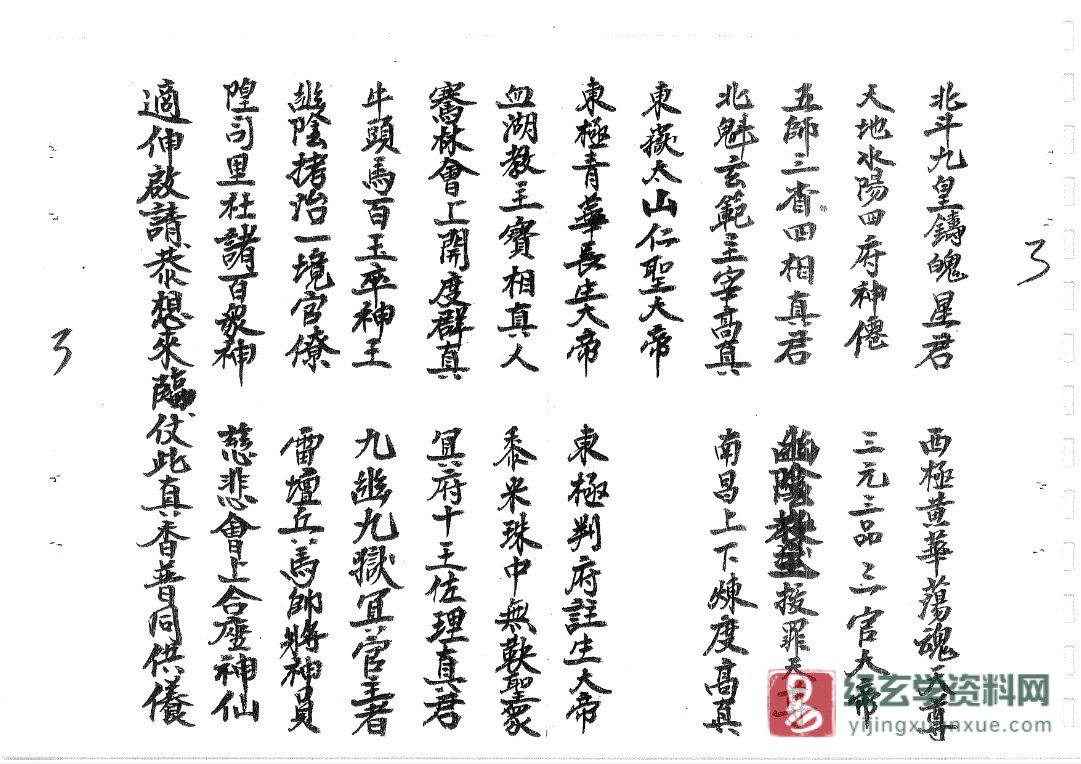 北斗九皇鑄魄星君 西極黄華蕩魂天尊
天地水陽四府神僊 三元三品三官大帝
五師三省四相真君 拔罪天尊
北魁玄範主宰高真 南昌上下煉度高真
東嶽太山仁聖大帝
東極青華長生大帝 東極判府註生大帝
血湖教主寳相真人 黍米珠中無鞅聖眾
騫林會上開度群真 冥府十王佐理真君
牛頭馬百玉卒神王 九幽九獄冥官主者
幽陰拷治一境官僚 雷壇兵馬帥將神員
隍司里社諸百眾神 慈悲會上合座神仙
適伸啟請恭想來臨仗此真香普同供養
易玄学资料网
yijingxuanxue.com